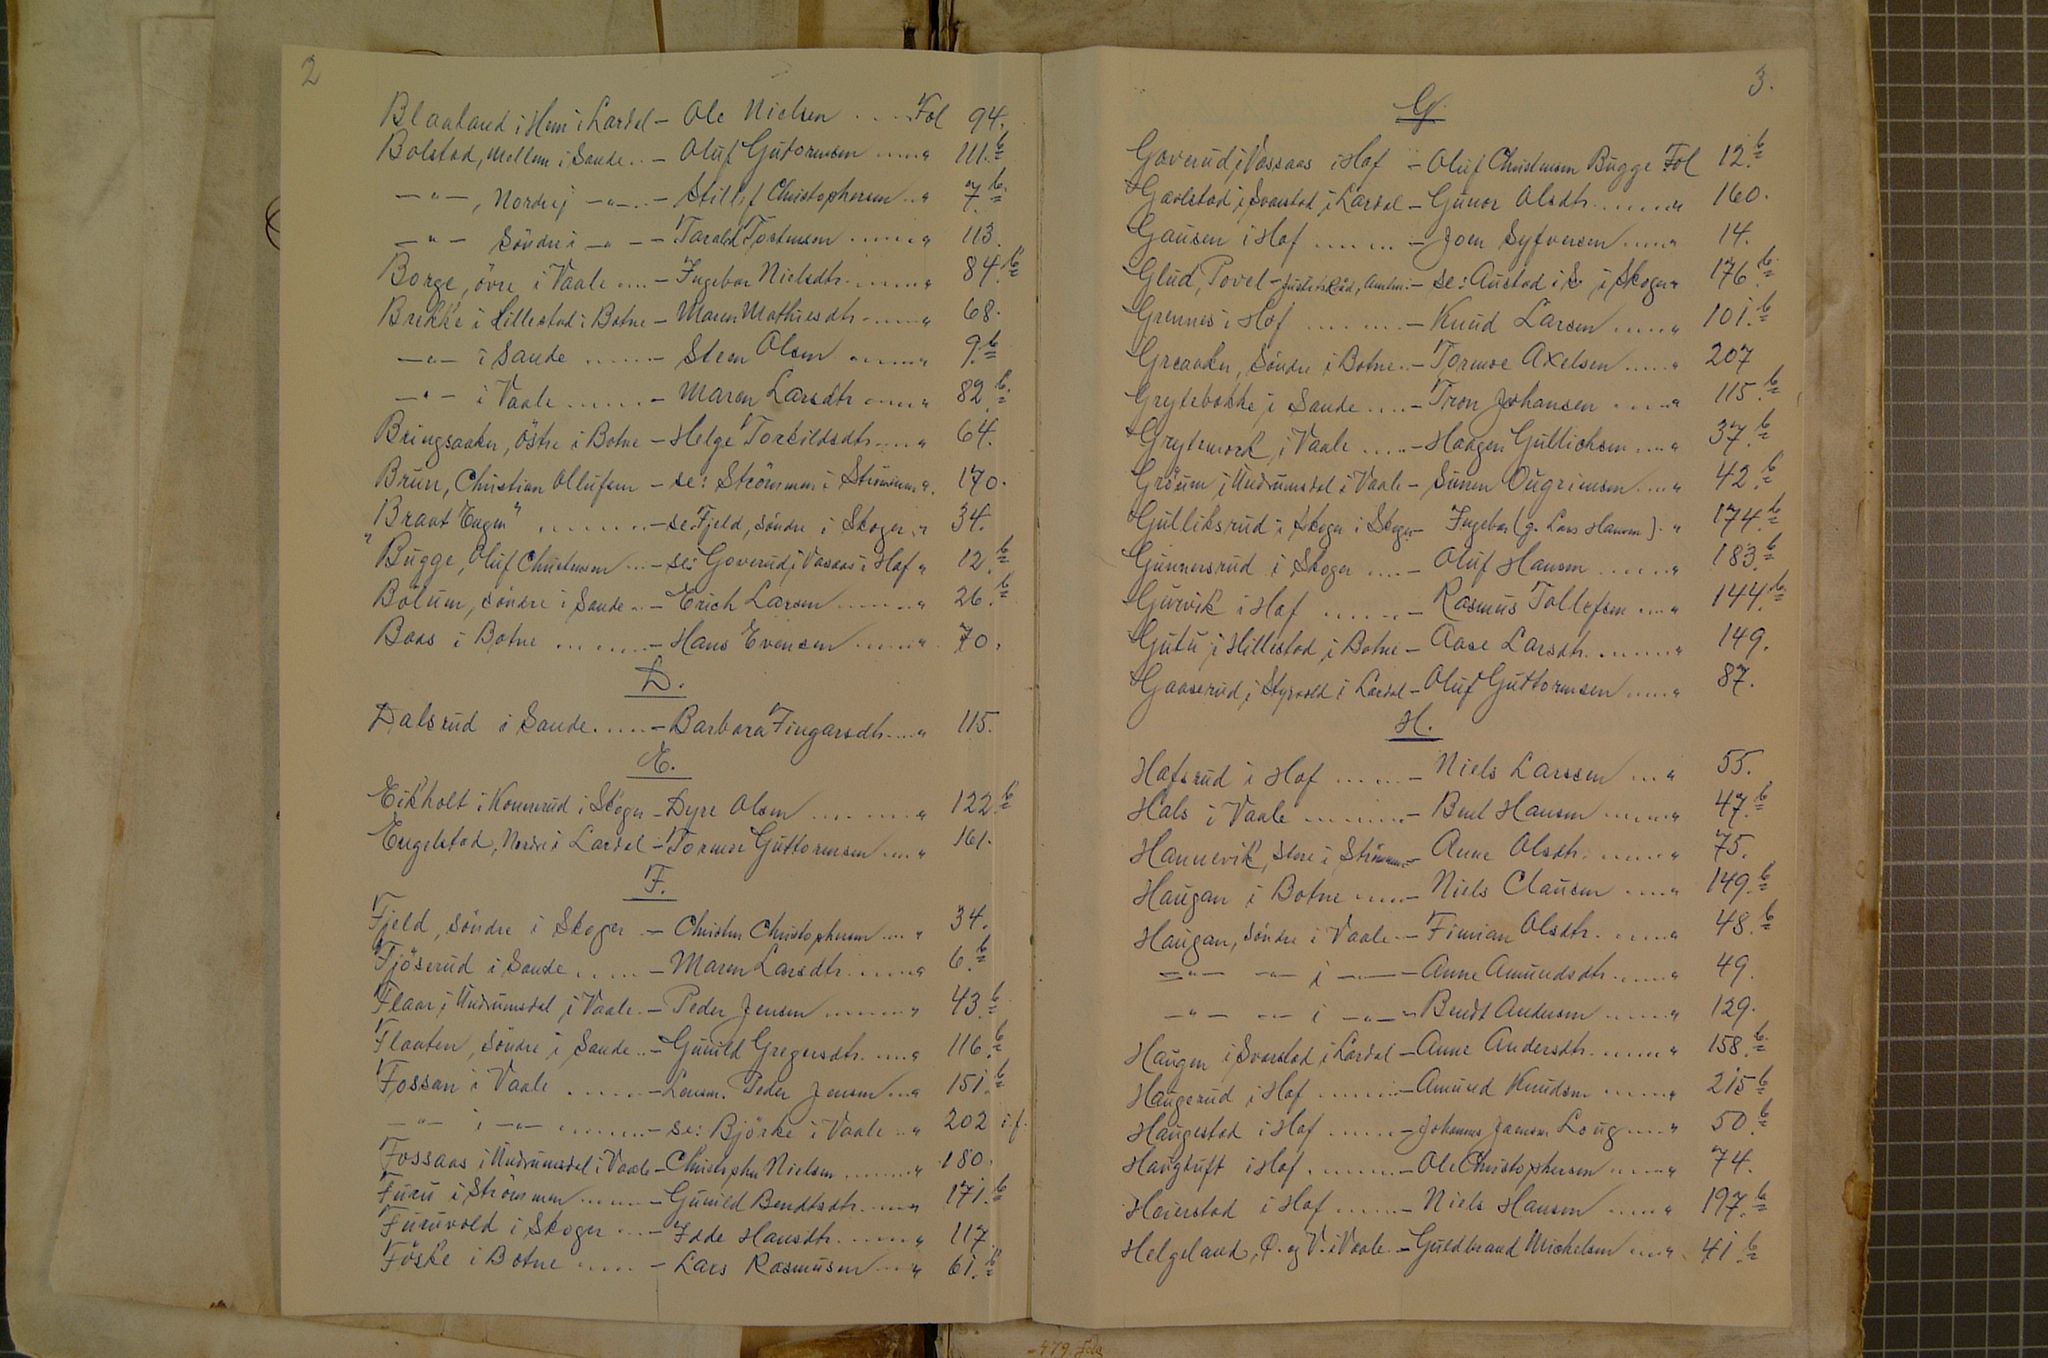 2
Blaaland i Hem i Lardal - Ole Nielsen .... Fol 94.
Bolstad, Mellem i Sande .. - Oluf Gutormsen ..... " 111.b
—"—, Nordre i —"— .. - Christophersen .. " 7.b
—"— Söndre i —"— - Tarald Torstensen ...... " 113.
Borge, övre i Vaale .... - Ingebor Nielsdtr. ...... " 84.b
Brekke i Hillestad i Botne - Maren Mathiesdtr ...... " 68.
—"— i Sande ...... - Steen Olsen ...... " 9.b
—"— i Vaale ...... - Maren Larsdtr ..... " 82.b
Bringsaaker, Östre i Botne - Helge Torkildsdtr ..... " 64.
Brun, Christian Ollufsen - se: Strömmen i Strömmen " 170.
"Braat Engen" ........ - se: Fjeld, söndre i Skoger .. " 34.
Bugge, Oluf Christensen ... - se: Goverud i Vassaas i Hof " 12.b
Bölum, söndre i Sande .. - Erich Larsen ....... " 26.b
Boas i Botne ....... - Hans Evensen ...... " 70.
D.
Dalsrud i Sande ..... - Barbara Fingarsdtr .... " 115.
E.
Eikholt i Konnerud i Skoger - Dyre Olsen ........ " 122.b
Engelstad, Nordre i Lardal - Tormoe Guttormsen .... " 161.
F.
Fjeld, söndre i Skoger .. - Christen Christophersen .... " 34.
Fjöserud i Sande ..... - Maren Larsdtr. ...... " 6.b
Flaar i Undrumsdal i Vaale .. - Peder Jensen ....... " 43.b
Flaaten, Söndre i Sande .. - Gunild Gregersdtr. .... " 116.b
Fossan i Vaale ...... - Lensm. Peder Jensen ... " 151.b
—"— i —"— ....... - se: Björke i Vaale .. " 202 i.f.
Fossaas i Undrumsdal i Vaale - Christopher Nielsen ...... " 180.
Furu i Strömmen ...... - Gunild Bendtsdtr. ..... " 171.b
Furuvold i Skoger ... - Idde Hansdtr. ...... " 117.
Föske i Botne ..... - Lars Rasmusen .... " 61.b
3.
G.
Goverud i Vassaas i Hof - Oluf Christensen Bugge Fol 12.b
Gavlstad i Svarstad i Lardal - Gunor Olsdtr. ....... " 160.
Gausen i Hof ....... - Joen Syfversen ..... " 14.
Glud, Povel - Justitsråd, Amtm. - se: Austad i S. i Skoger " 176.b
Grennes i Hof ........ - Knud Larsen ..... " 101.b
Greaaker, Söndre i Botne .. - Tormoe Axelsen ..... " 207
Grytebakke i Sande .... - Tron Johansen ..... " 115.b
Grytemork i Vaale ..... - Haagen Gullichsen .... " 37.b
Gröum i Undrumsdal i Vaale - Simen Ougrimsen .... " 42.b
Gulliksrud i Skoger i Skoger - Ingebor (g. Lars Hansen). " 174.b
Gunnersrud i Skoger .... - Oluf Hansen ...... " 183.b
Gurvik i Hof ...... - Rasmus Tollefsen .... " 144.b
Gutu i Hillestad i Botne - Aase Larsdtr. ....... " 149.
Gaaserud i Styrvold i Lardal - Oluf Guttormsen ..... " 87.
H.
Hafsrud i Hof ...... - Niels Larssen ... " 55.
Hals i Vaale ........ - Bent Hansen ...... " 47.b
Hannevik, store i Strömmen - Anne Olsdtr. ...... " 75.
Haugan i Botne .... - Niels Clausen ..... " 149.b
Haugan, Söndre i Vaale .. - Finnian Olsdtr. ..... " 48.b
—"— —"— i —"— - Anne Amundsdtr. ..... " 49.
—"— —"— i —"— - Bendt Andersen ...... " 129.
Haugen i Svarstad i Lardal - Anne Andersdtr. ..... " 158.b
Haugerud i Hof ....... - Amund Knudsen ...... " 215 b
Haugestad i Hof ...... - Johannes Jacobsen Loug .... " 50.b
Haugtuft i Hof ....... - Ole Christophersen ..... " 74.
Heierstad i Hof ...... - Niels Hansen ..... " 197.b
Helgeland, Ö. og V. i Vaale .. - Guldbrand Michelsen .... " 41.b